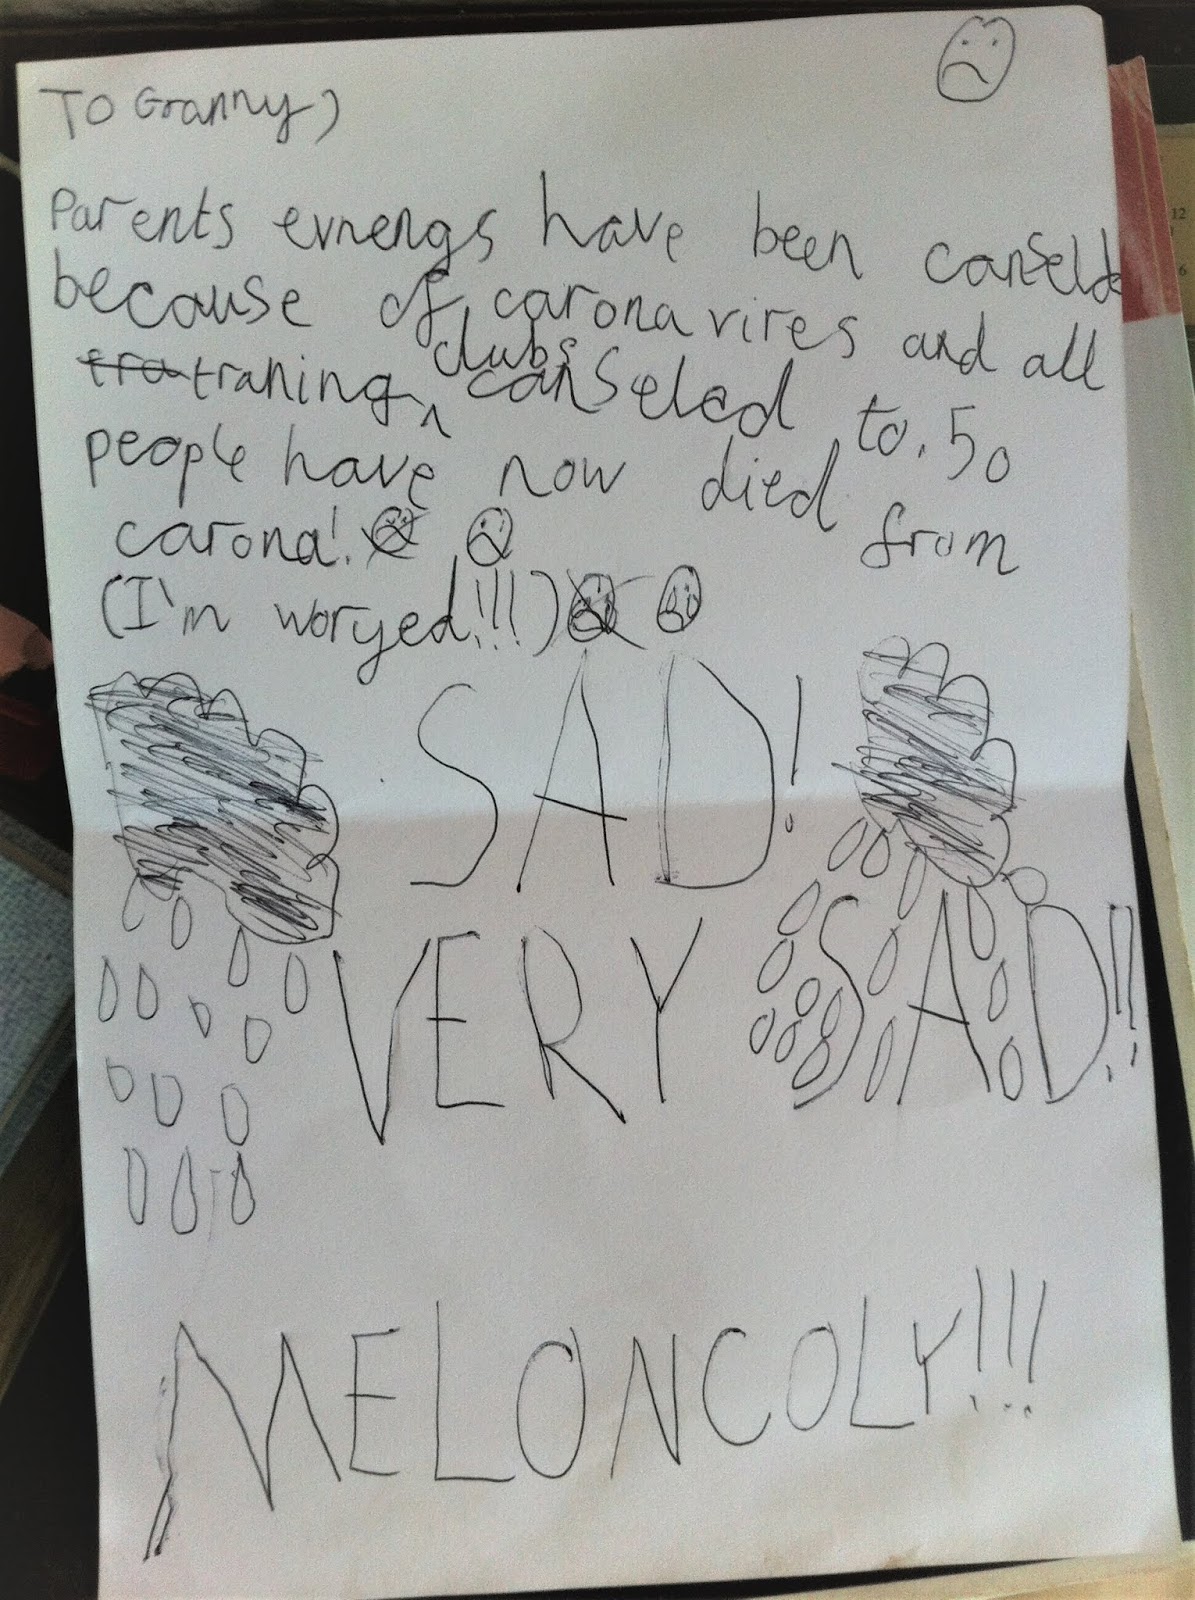 To Granny,
Parents evnengs have been canseld
because of caronavires and all
tra traning clubs canseled to. 50
people have now died from
carona!.
(I'm woryed!!!)
SAD!
VERY SAD!!
MELONCOLY!!!
12
6